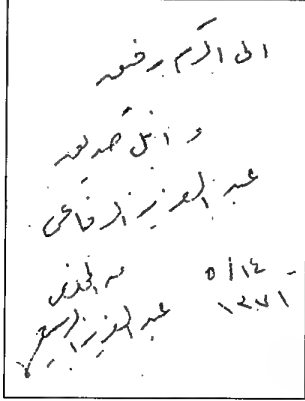 الى اكرم رفيق
و انبل صديق
عبد العزيز الرفاعي
من المخلص
عبد العزيز الربيع
١٤/٥
١٣٧١